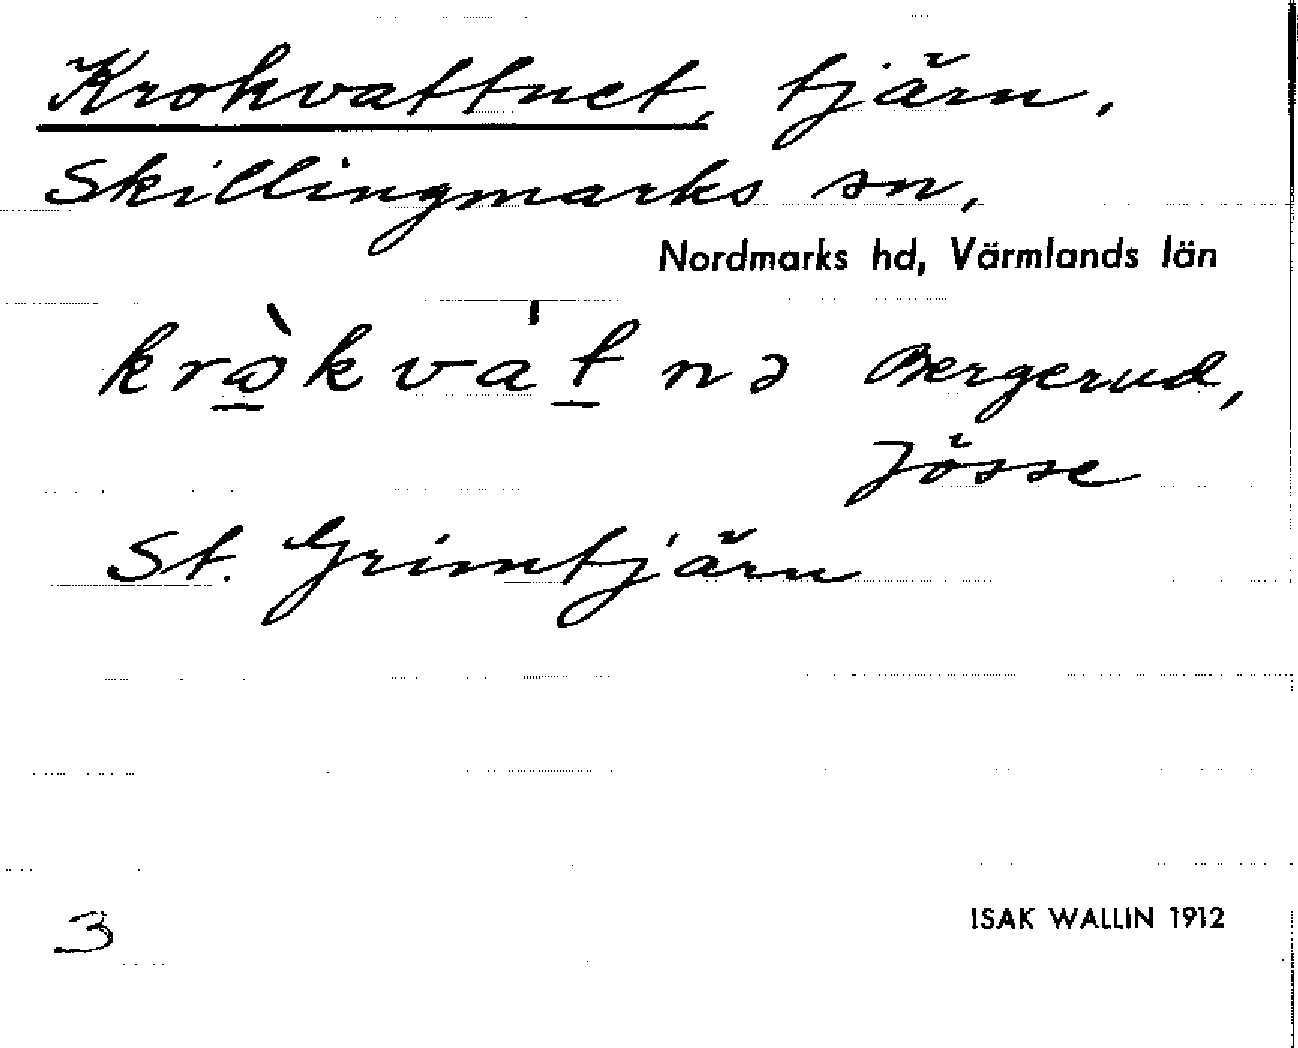 Krokvattnet, tjärn,
Skillingmarks sn,
Nordmarks hd, Värmlands län
kròkvát nə Bergerud,
Jösse
St. Grimtjärn
3
ISAK WALLIN 1912